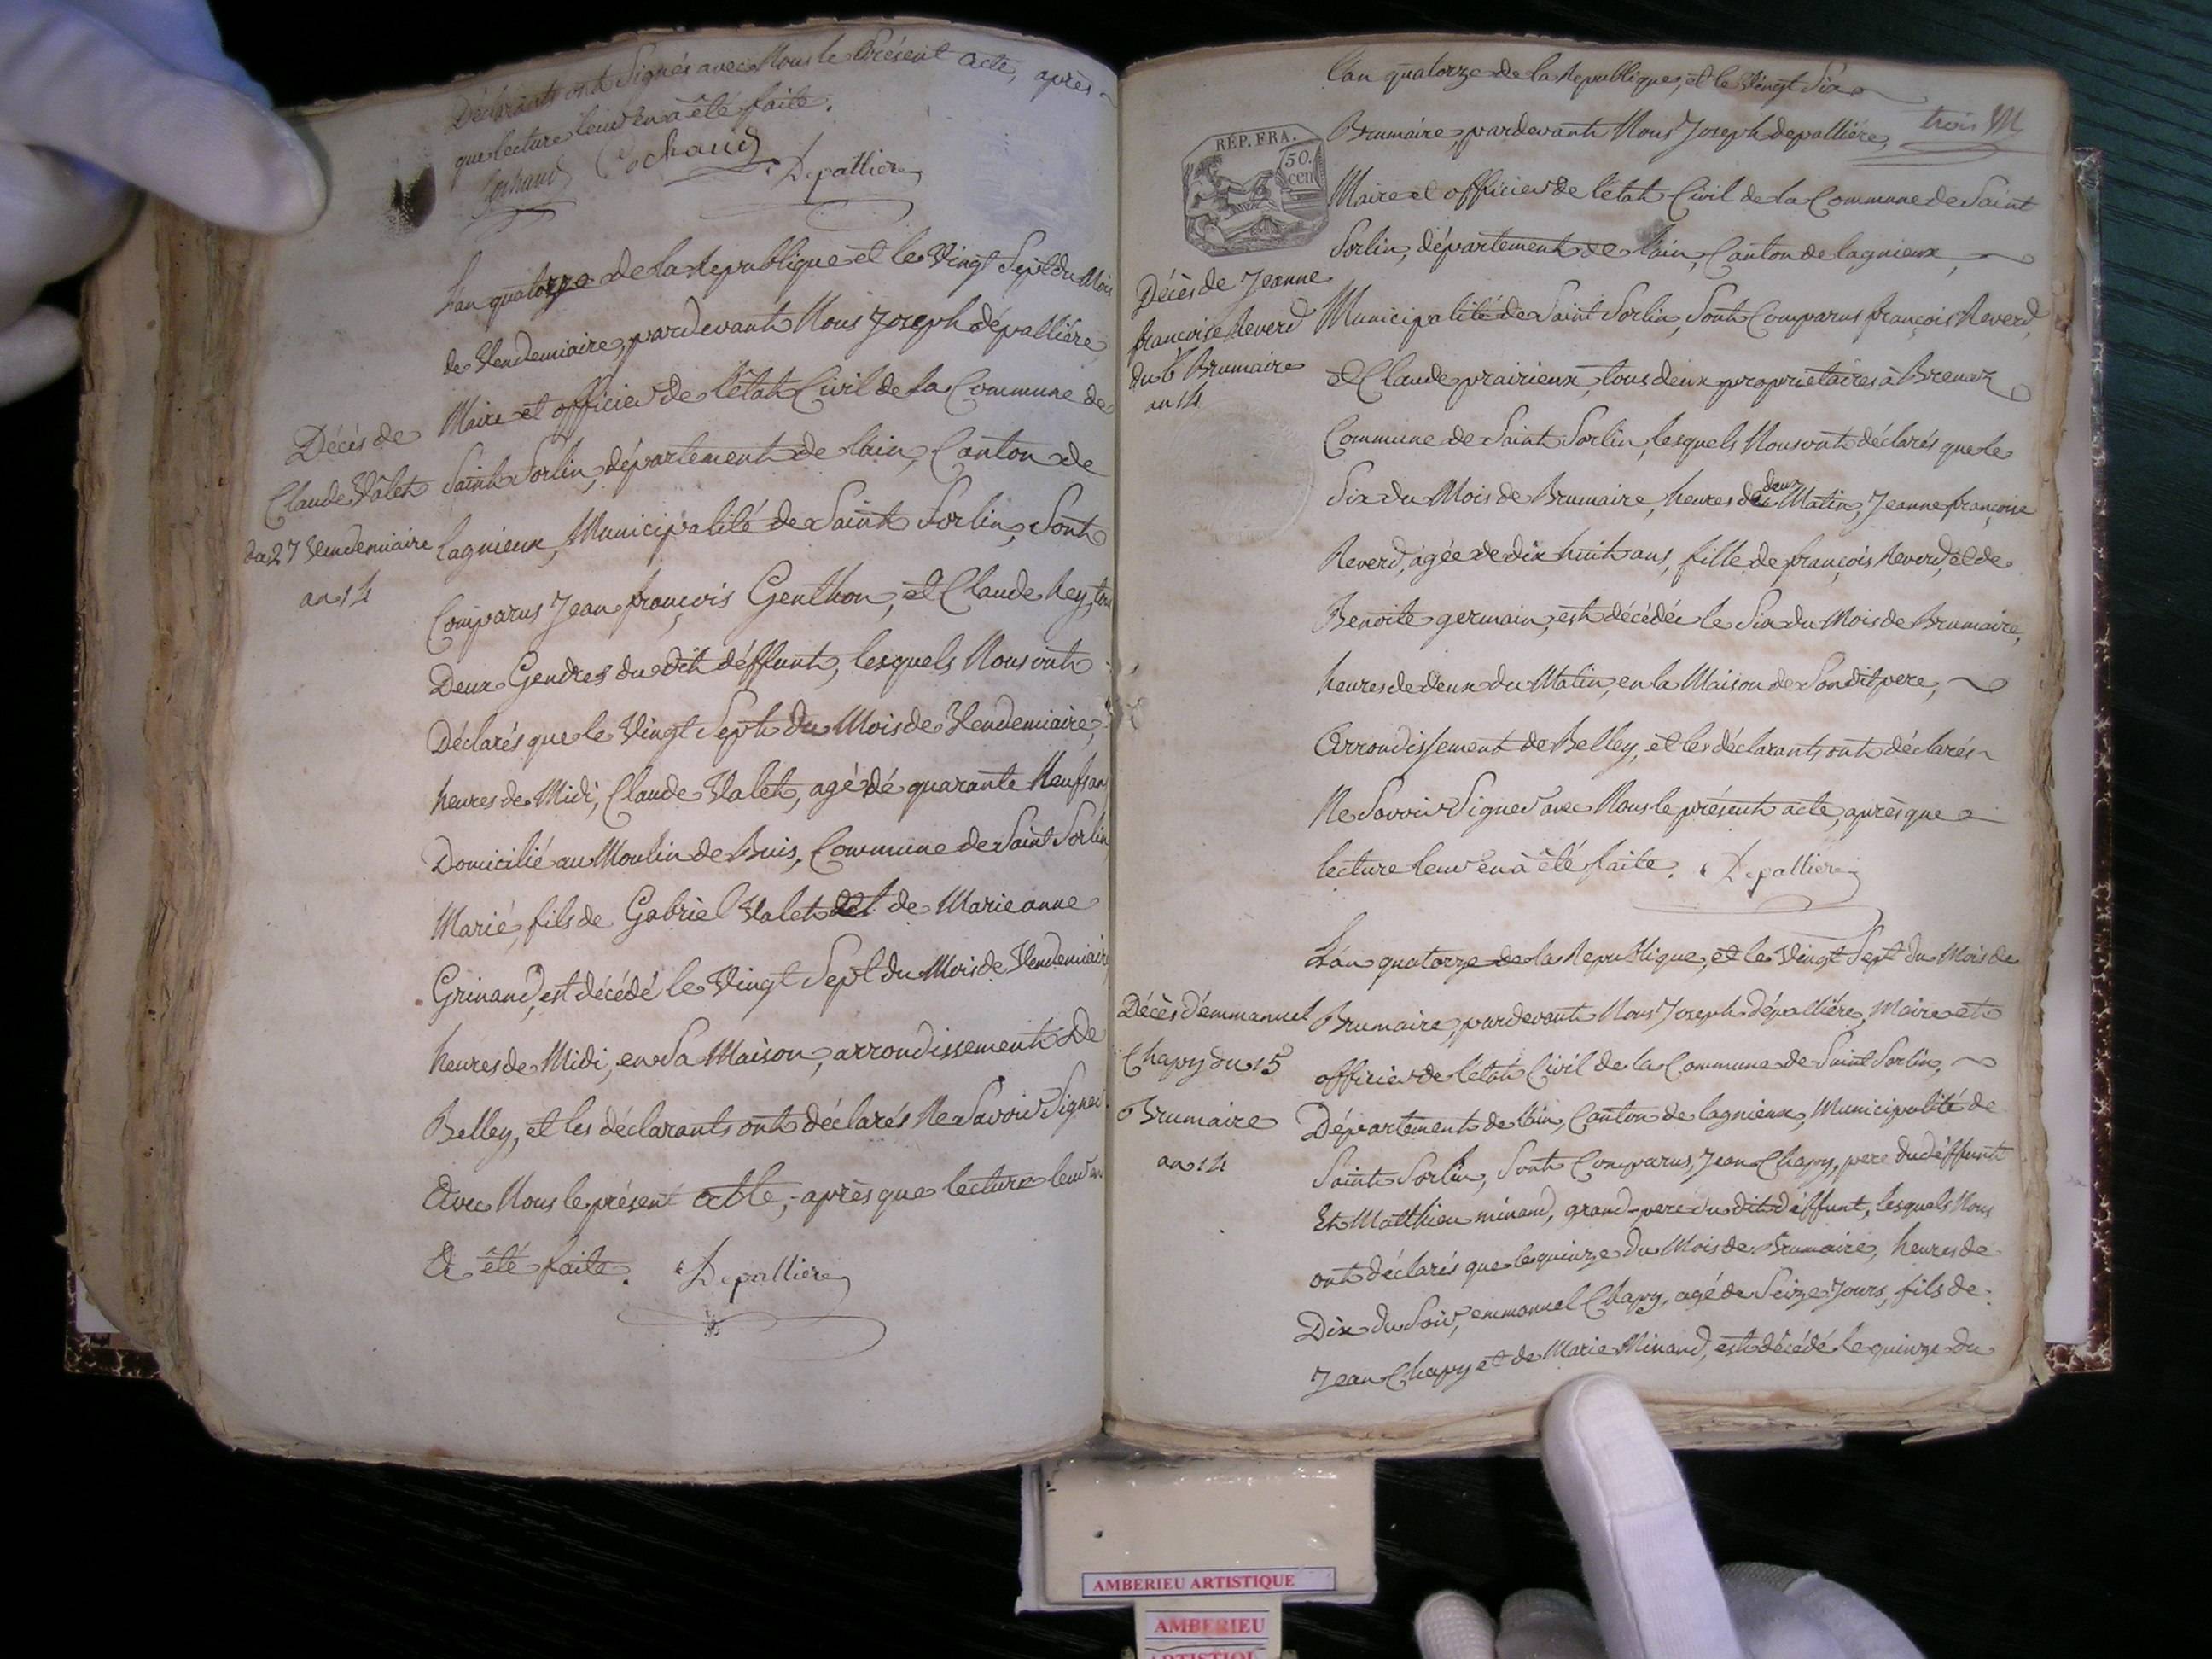 Déclarants ont Signés avec Nous le Présent acte, après
que lecture leur en à été faite.
Cochaud Depalliere
L'an quatorze de la Republique et le Vingt Sept du Mois
de Vendemiaire, pardevant Nous Joseph dépalliére
Maire et officier de l'état Civil de la Commune de
Saint Sorlin, département de l'ain, Canton de
lagnieux, Municipalité de Saint Sorlin, Sont
Comparus Jean françois Genthon, et Claude Rey, tous
Deux Gendres du dit déffunt, lesquels Nous ont
Déclarés que le Vingt Sept du Mois de Vendemiaire,
heures de Midi, Claude Valet, agé dé quarante Neuf ans
Domicilié au Moulin de Buis, Commune de Saint Sorlin
Marié, fils de Gabriel Valet et de Marieanne
Grinand, est décédé le Vingt Sept du Mois de Vendemiaire
heures de Midi, en Sa Maison, arrondissement De
Belley, et les déclarants ont déclarés Ne Savoir Signer
Avec Nous le présent acte, après que lecture leur en
A été faite. Depalliere
Décès de
Claude Valet
du 27 Vendemiaire
an 14
L'an quatorze de la Republique, et le Vingt Six
trois M
RÉP. FRA.
50.
cen
Brumaire, pardevant Nous Joseph depalliére,
Maire et officier de l'état Civil de la Commune de Saint
Sorlin, département de l'ain, Canton de lagnieux,
Municipalité de Saint Sorlin, Sont Comparus françois Reverd,
et Claude prairieux, tous deux propriétaires à Brenaz
Commune de Saint Sorlin, lesquels Nous ont déclarés que le
Six du Mois de Brumaire, heures de deux du Matin, Jeanne françoise
Reverd, agée de dix huit ans, fille de françois Reverd, et de
Benoite germain, est décédée le Six du Mois de Brumaire,
heures de deux du Matin, en la Maison de Son dit pere,
Arrondissement de Belley, et les déclarants ont déclarés
Ne Savoir Signer avec Nous le présent acte, après que
lecture leur en à été faite. Depalliere
Décès de Jeanne
françoise Reverd
du 6 Brumaire
an 14
L'an quatorze de la Republique, et le Vingt Sept du Mois de
Brumaire, pardevant Nous Joseph dépalliére, Maire et
officier de l'état Civil de la Commune de Saint Sorlin,
Département de l'ain, Canton de lagnieux, Municipalité de
Saint Sorlin, Sont Comparus, Jean Chapy, pere du déffunt
Et Matthieu minand, grand-pere du dit déffunt, lesquels Nous
ont déclarés que le quinze du Mois de Brumaire, heures de
Dix du Soir, emmanuel Chapy, agé de Seize Jours, fils de
Jean Chapy et de Marie Minand, est décédé le quinze du
Décès d'emmanuel
Chapy du 15
Brumaire
an 14
AMBERIEU ARTISTIQUE
AMBERIEU
ARTISTIQUE